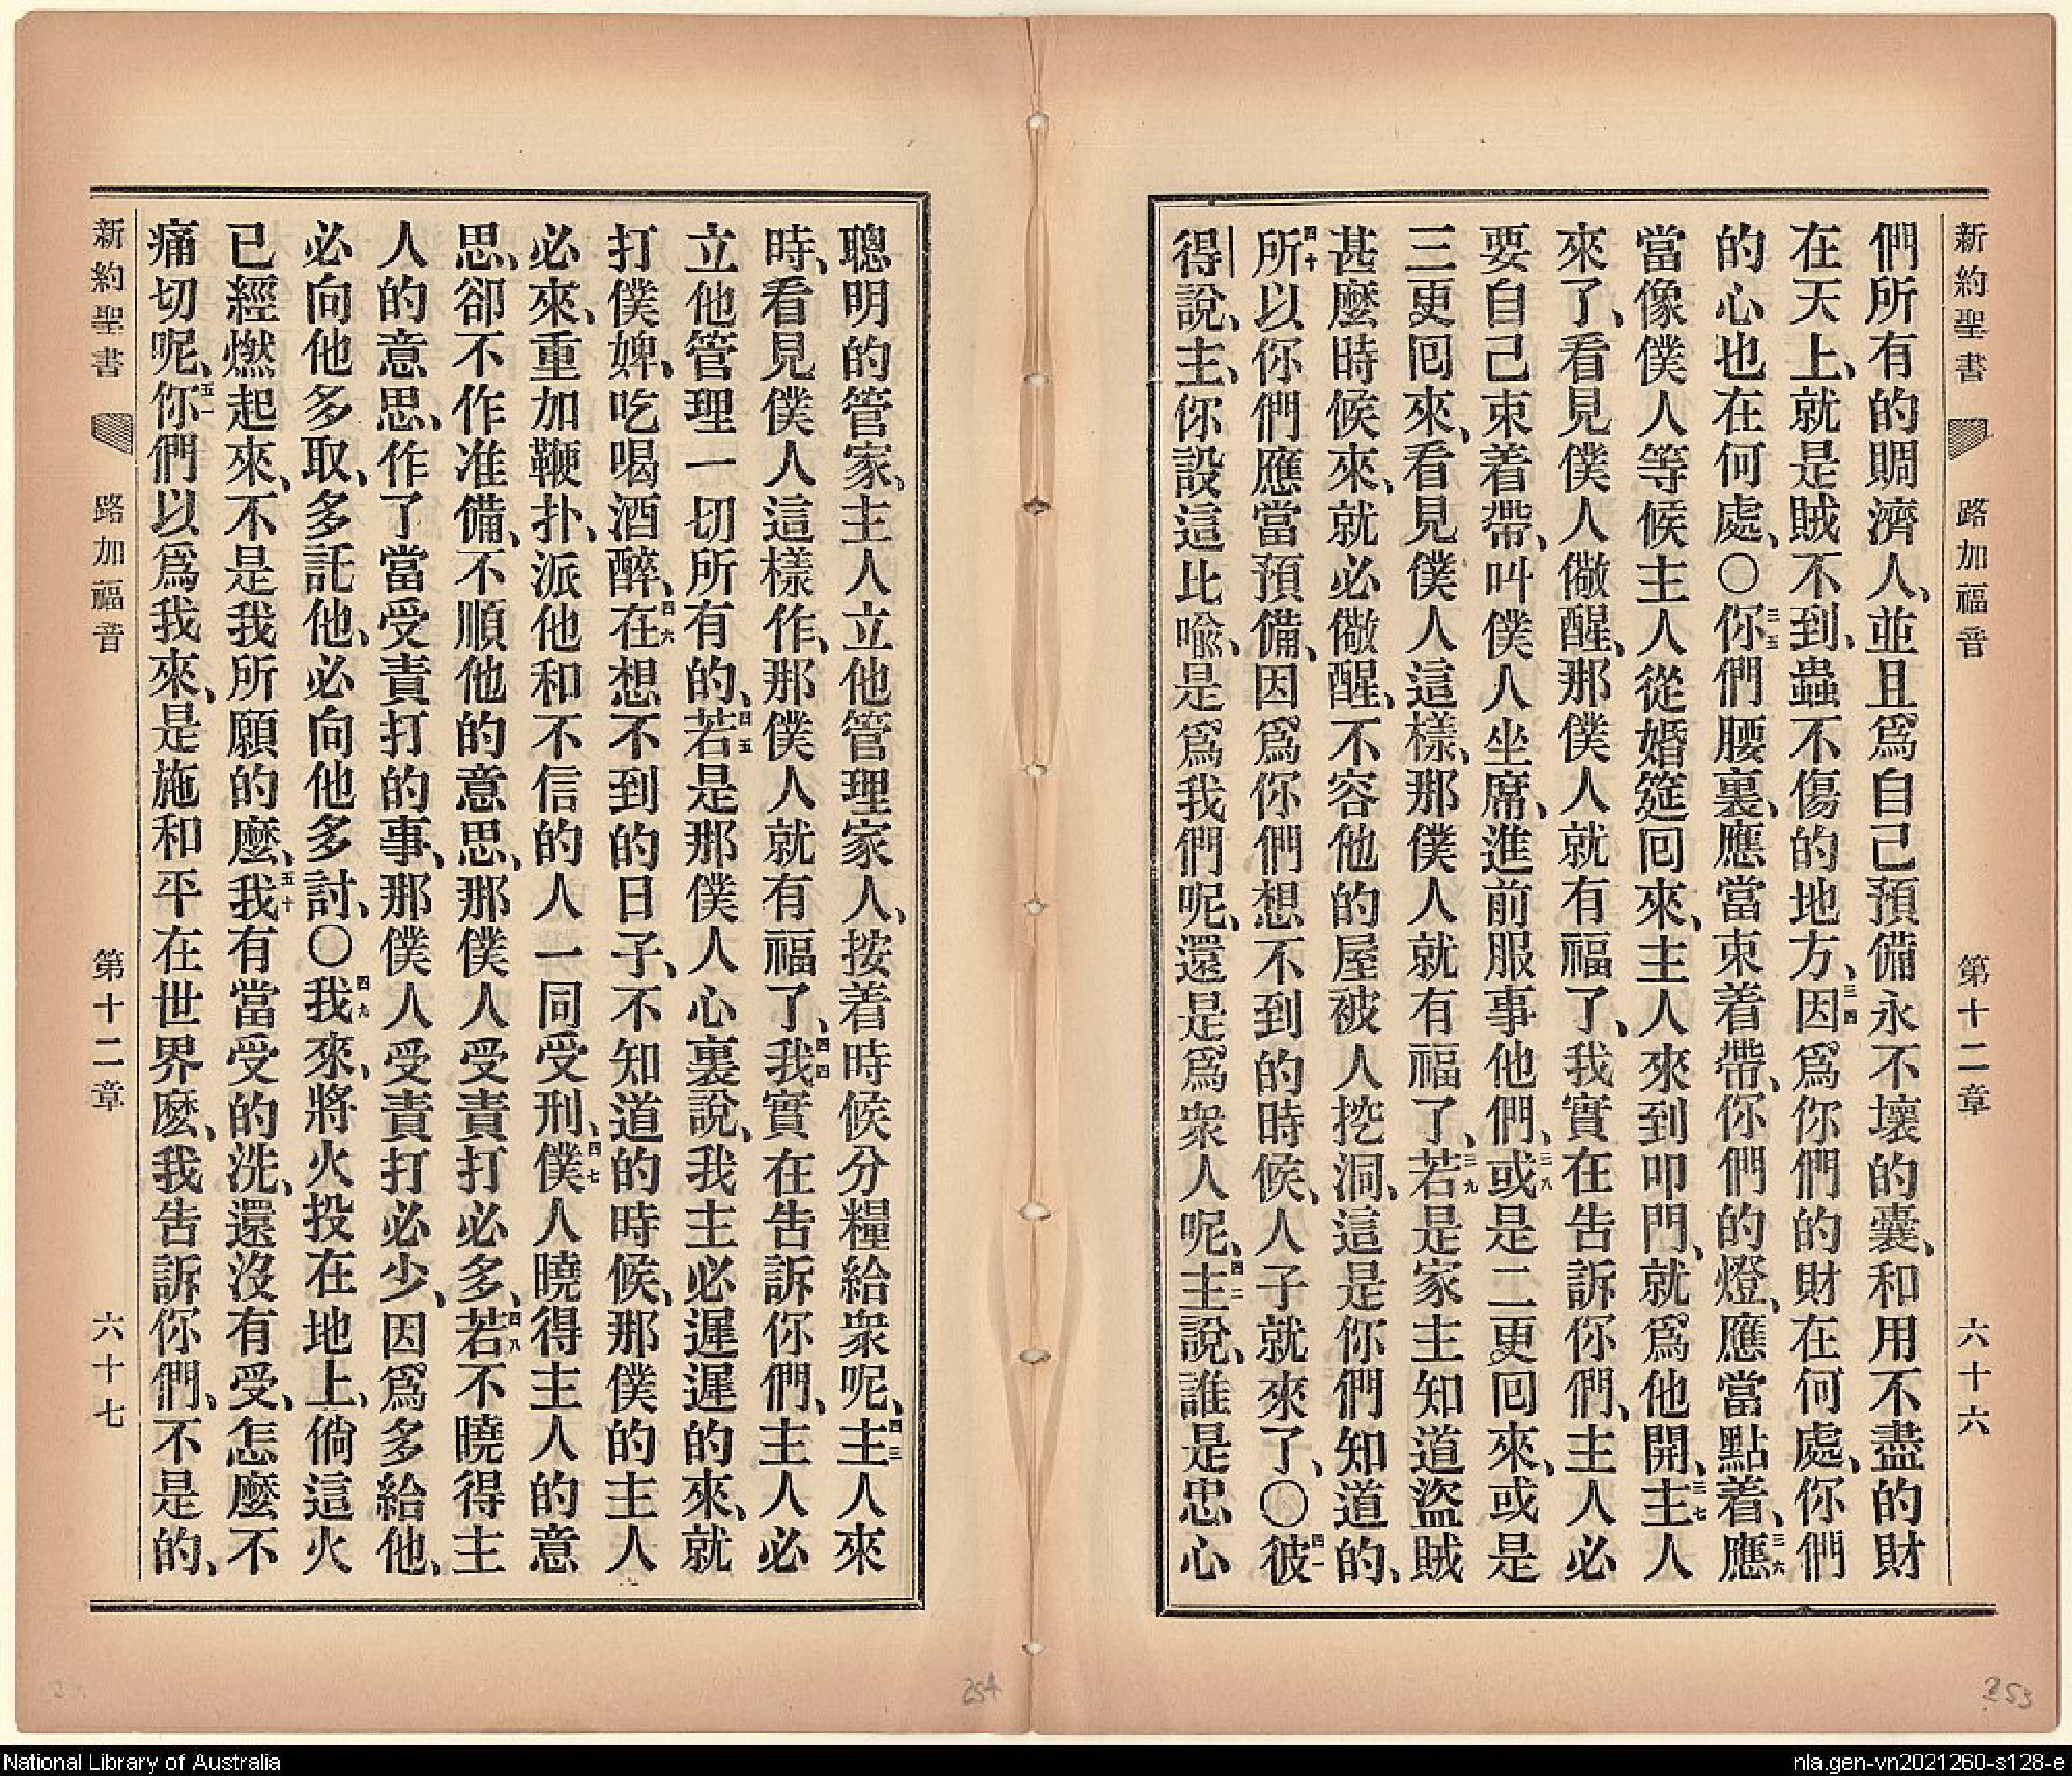 新約聖書 路加福音 第十二章 六十六
們所有的賙濟人、並且爲自己預備永不壞的囊、和用不盡的財
在天上、就是賊不到、蟲不傷的地方、三四因爲你們的財在何處、你們
的心也在何處、〇三五你們腰裏、應當束着帶、你們的燈、應當點着、三六應
當像僕人等候主人從婚筵回來、主人來到叩門、就爲他開、三七主人
來了、看見僕人儆醒、那僕人就有福了、我實在告訴你們、主人必
要自己束着帶、叫僕人坐席、進前服事他們、三八或是二更回來、或是
三更回來、看見僕人這樣、那僕人就有福了、三九若是家主知道盜賊
甚麼時候來、就必儆醒、不容他的屋被人挖洞、這是你們知道的、
四十所以你們應當預備、因爲你們想不到的時候、人子就來了、〇四一彼
得說、主、你設這比喩、是爲我們呢、還是爲衆人呢、四二主說、誰是忠心
聰明的管家、主人立他管理家人、按着時候分糧給衆呢、四三主人來
時、看見僕人這樣作、那僕人就有福了、四四我實在告訴你們、主人必
立他管理一切所有的、四五若是那僕人心裏說、我主必遲遲的來、就
打僕婢、吃喝酒醉、四六在想不到的日子、不知道的時候、那僕的主人
必來、重加鞭扑、派他和不信的人一同受刑、四七僕人曉得主人的意
思、卻不作准備、不順他的意思、那僕人受責打必多、四八若不曉得主
人的意思、作了當受責打的事、那僕人受責打必少、因爲多給他、
必向他多取、多託他、必向他多討、〇四九我來、將火投在地上、倘這火
已經燃起來、不是我所願的麼、五十我有當受的洗、還沒有受、怎麼不
痛切呢、五一你們以爲我來、是施和平在世界麼、我告訴你們、不是的、
新約聖書 路加福音 第十二章 六十七
254
253
National Library of Australia
nla.gen-vn2021260-s128-e